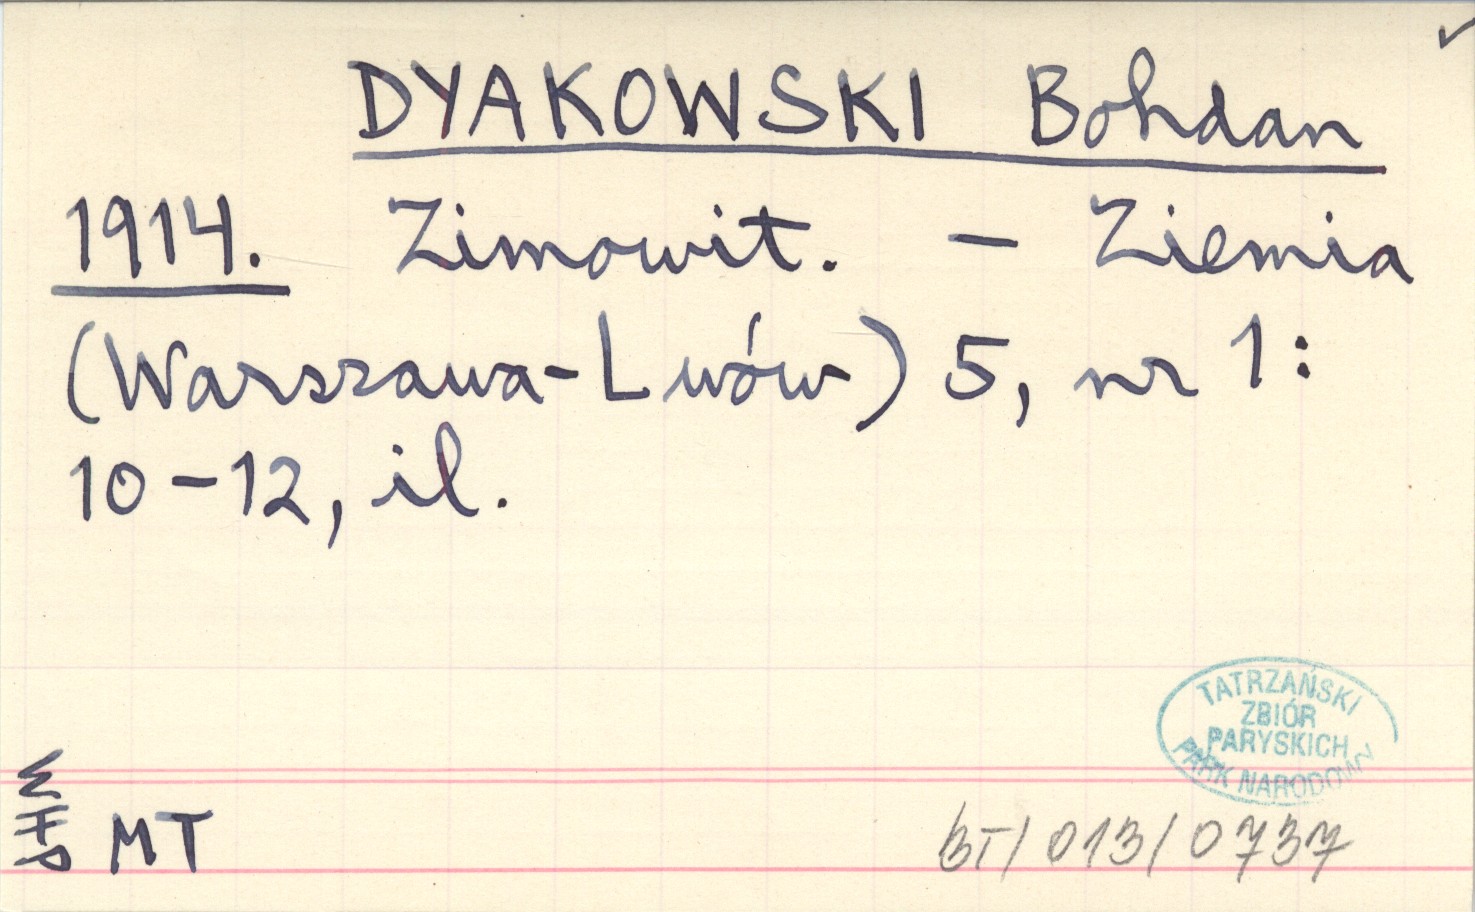 DYAKOWSKI Bohdan
1914. Zimowit. – Ziemia
(Warszawa-Lwów) 5, nr 1:
10–12, il.
TATRZAŃSKI
ZBIÓR
PARYSKICH
PARK NARODOWY
MT
BT/013/0737